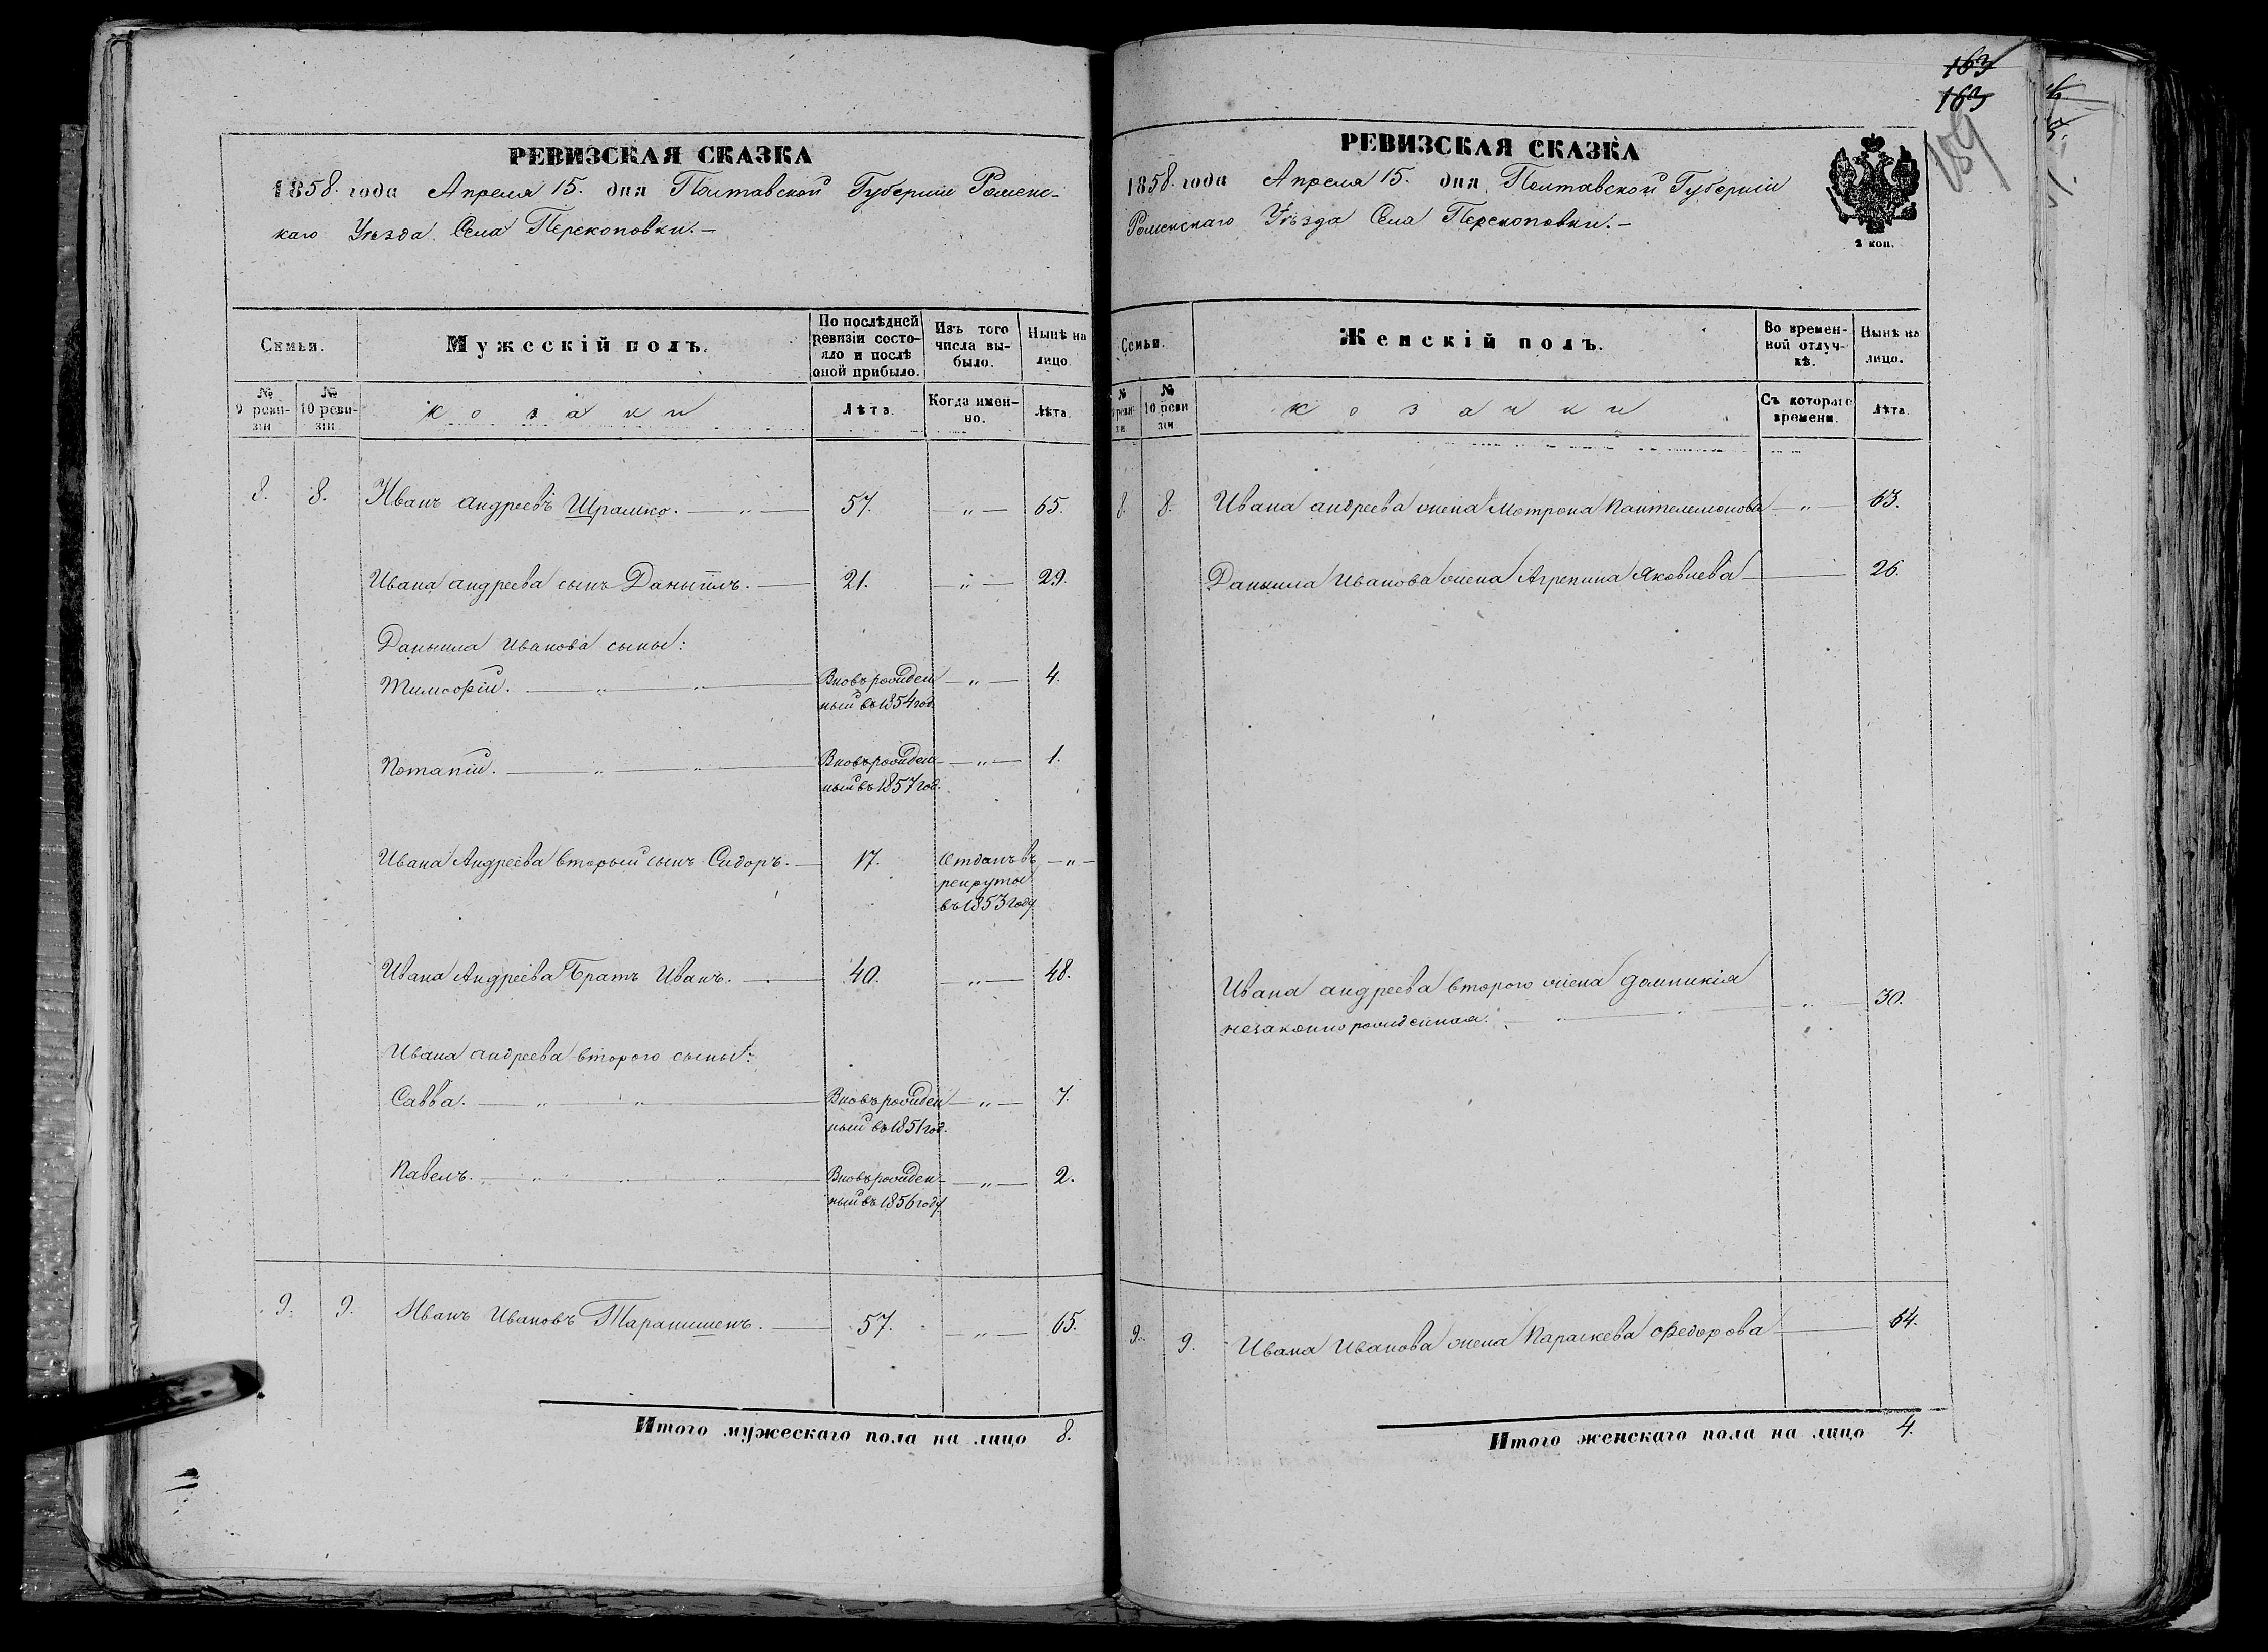 РЕВИЗСКАЯ СКАЗКА
1858. года Апреля 15. дня Полтавской Губернiи Роменс-
каго Уѣзда. Села Перекоповки.—
Семьи.
Мужескій полъ.
По послѣдней ревизіи состо-
яло и послѣ
оной прибыло.
Изъ того
числа вы-
было.
Нынѣ на
лицо.
№
9 реви-
зіи
№
10 реви-
зіи
козаки
Лѣта.
Когда имен-
но.
Лѣта.
8. 8. Иванъ андреевъ Шрамко. — „ — 57. — „ — 65.
Ивана андреева сынъ Даныилъ. — 21. — „ — 29.
Даныила иванова сыны:
Тимофiй. — „ — „ — Вновьрожден — „ — 4.
ный въ 1854 год.
Потапiй. — „ — „ — Вновьрожден- — „ — 1.
ный въ 1857 год.
Ивана Андреева вторый сынъ Сидоръ. — 17. Отданъ въ — „ —
рекруты
въ 1853 году
Ивана Андреева Братъ Иванъ. — 40. — „ — 48.
Ивана андреева второго сыны:
Савва. — „ — „ — Вновьрожден — „ — 7.
ный въ 1851 год.
Павелъ. — „ — „ — „ — Вновьрожден- — „ — 2.
ный въ 1856 году
9. 9. Иванъ Ивановъ Таранишенъ. — 57. — „ — 65.
Итого мужескаго пола на лицо 8.
163
163
189
РЕВИЗСКАЯ СКАЗКА
1858. года Апреля 15. дня Полтавской Губернiи
Роменскаго Уѣзда Села Перекоповки.—
2 коп.
Семьи.
Женскій полъ.
Во времен-
ной отлуч-
кѣ.
Нынѣ на
лицо.
№
9 реви-
зіи
№
10 реви
зіи
козачки
Съ котораго
времени.
Лѣта.
8. 8. Ивана андреева жена Мотрона Пантелемонова — „ — 63.
Даныила Иванова жена Агрепина Яковлева — 26.
Ивана андреева второго жена Домникiя
незаконнорожденная. — „ — „ — „ — 30.
9. 9. Ивана Иванова жена Параскева Федорова — 64.
Итого женскаго пола на лицо 4.